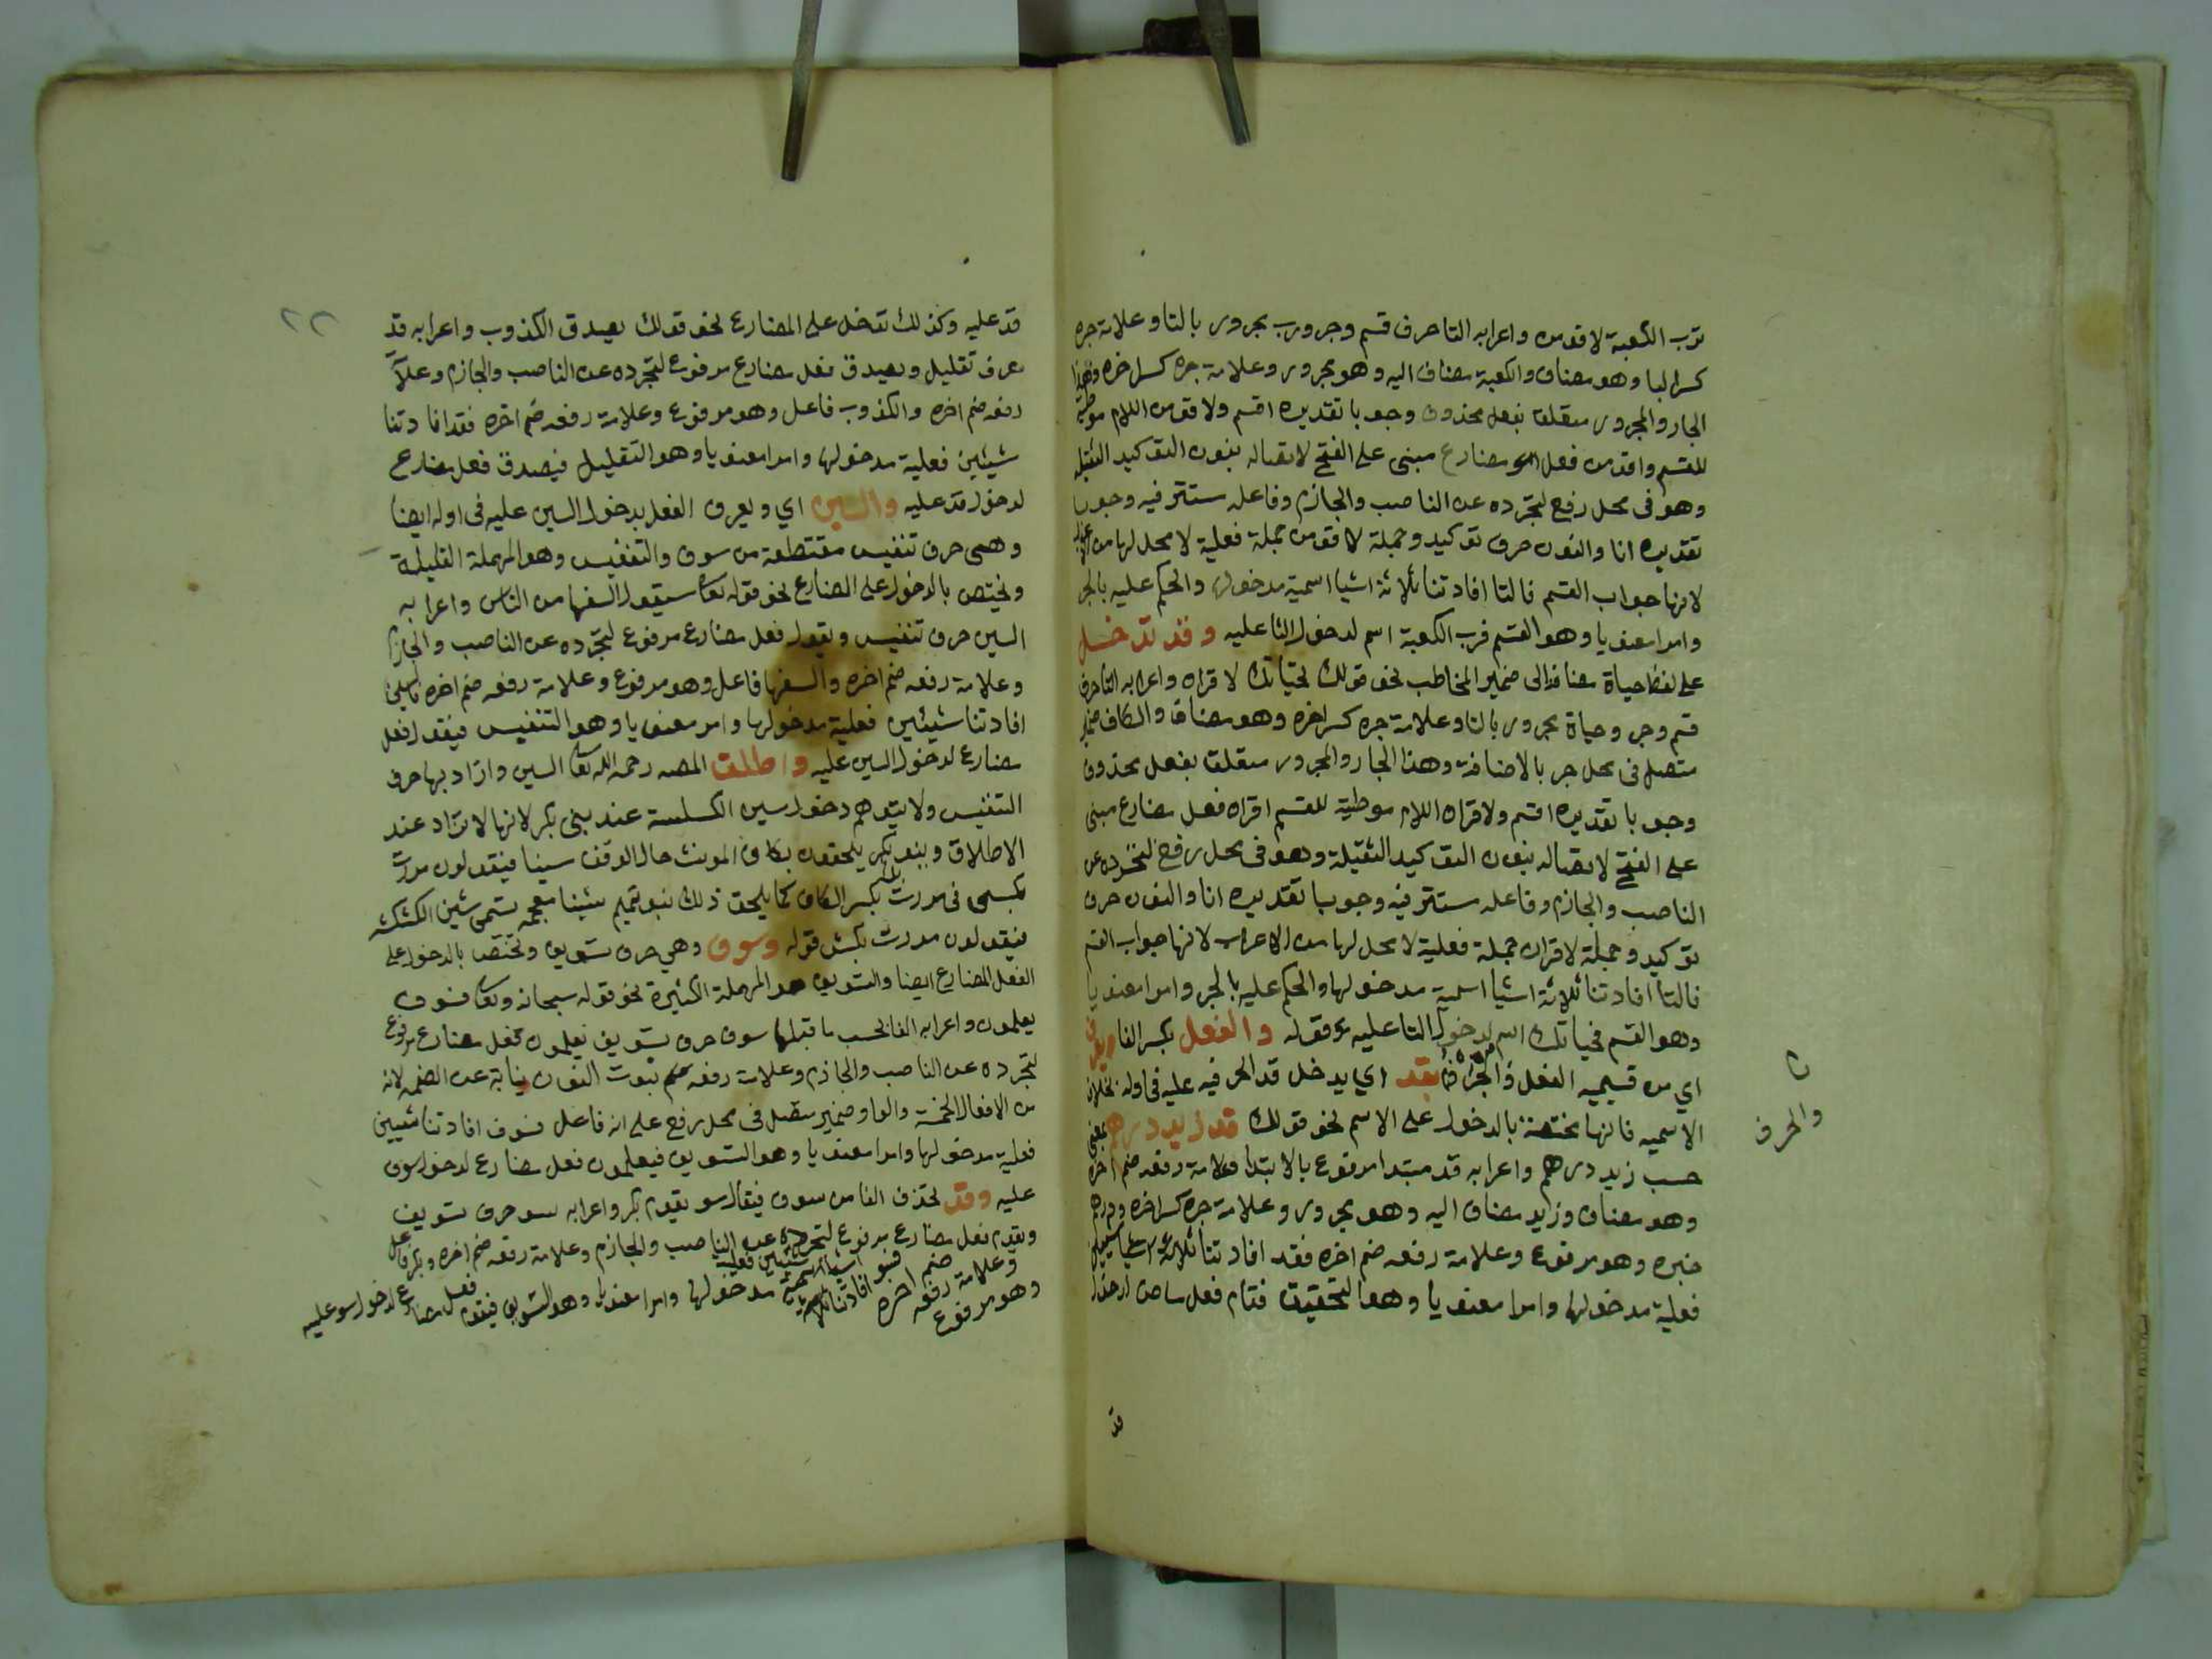 ترب الكعبة لاقومن واعرابه التا حرف قسم وجر ورب مجرور بالتا وعلامة جره
كسر البا وهو مضاف والكعبة مضاف اليه وهو مجرور وعلامة جره كسر اخره وهذا
الجار والمجرور متعلق بفعل محذوف وجوبا تقديره اقسم ولاقومن اللام موطية
للقسم واقومن فعل مضارع مبنى على الفتح لاتصاله بنون التوكيد الثقيلة
وهو فى محل رفع لتجرده عن الناصب والجازم وفاعله مستتر فيه وجوبا
تقديره انا والنون حرف توكيد وجملة لاقومن جملة فعلية لا محل لها من الاعراب
لانها جواب القسم فالتا افادتنا ثلاثة اشيا اسمية مدخولها والحكم عليه بالجر
وامرا معنويا وهو القسم فرب الكعبة اسم لدخول التا عليه وقد تدخل
على لفظ حياة مضافا الى ضمير المخاطب نحو قولك تحياتك لاقران واعرابه التا حرف
قسم وجر وحياة مجرور بالتا وعلامة جره كسر اخره وهو مضاف والكاف ضمير
متصل فى محل جر بالاضافة وهذا الجار والمجرور متعلق بفعل محذوف
وجوبا تقديره اقسم ولاقران اللام موطية للقسم اقران فعل مضارع مبنى
على الفتح لاتصاله بنون التوكيد الثقيلة وهو فى محل رفع لتجرده عن
الناصب والجازم وفاعله مستتر فيه وجوبا تقديره انا والنون حرف
توكيد وجملة لاقران جملة فعلية لا محل لها من الاعراب لانها جواب القسم
فالتا افادتنا ثلاثة اشيا اسمية مدخولها والحكم عليه بالجر وامرا معنويا
وهو القسم فحياتك اسم لدخول التا عليه قوله والفعل بكسر الفا
اي من قسيميه الفعل بقد اي يدخل قد الحرفيه عليه فى اوله بخلاف
والحرف
الاسميه فانها مختصة بالدخول على الاسم نحو قولك قد زيد درهم بمعنى
حسب زيد درهم واعرابه قد مبتدا مرفوع بالابتدا وعلامة رفعه ضم اخره
وهو مضاف وزيد مضاف اليه وهو مجرور وعلامة جره كسر اخره ودرهم
خبره وهو مرفوع وعلامة رفعه ضم اخره فقد افادتنا
فعلية مدخولها وامرا معنويا وهو التحقيق فقام فعل ماض لدخول
قد
٢٢
قد عليه وكذلك تدخل على المضارع نحو قولك يصدق الكذوب واعرابه قد
حرف تقليل ويصدق فعل مضارع مرفوع لتجرده عن الناصب والجازم وعلامة
رفعه ضم اخره والكذوب فاعل وهو مرفوع وعلامة رفعه ضم اخره فقد افادتنا
شيئين فعلية مدخولها وامرا معنويا وهو التقليل فيصدق فعل مضارع
لدخول قد عليه والسين اي ويعرف الفعل بدخول السين عليه فى اوله ايضا
وهى حرف تنفيس مقتطعة من سوف والتنفيس وهو المهملة القليلة
وتختص بالدخول على المضارع نحو قوله تعا سيقول السفها من الناس واعرابه
السين حرف تنفيس ويقول فعل مضارع مرفوع لتجرده عن الناصب والجازم
وعلامة رفعه ضم اخره والسفها فاعل وهو مرفوع وعلامة رفعه ضم اخره فالسين
افادتنا شيئين فعلية مدخولها وامر معنويا وهو التنفيس فيقول فعل
مضارع لدخول السين عليه واطلق المصه رحمه الله تعا السين واراد بها حرف
التنفيس ولا يتوهم دخول سين الكسكسة عند بنى بكر لانها لا تراد عند
الاطلاق وبنو بكر يلحقون بكاف المونث حال الوقف سينا فيقولون مررت
بكس فى مررت بك بكسر الكاف كما يلحق ذلك بنو تميم شينا معجمه تسمى شين الكشكشه
فيقولون مررت بكش قوله وسوف وهي حرف تسويف وتختص بالدخول على
الفعل المضارع ايضا والتسويف هو المهملة الكثيرة نحو قوله سبحانه وتعا فسوف
يعلمون واعرابه الفا بحسب ما قبلها سوف حرف تسويف يعلمون فعل مضارع مرفوع
لتجرده عن الناصب والجازم وعلامة رفعه ثبوت النون نيابة عن الضمه لانه
من الافعال الخمسة والواو ضمير متصل فى محل رفع على انه فاعل فسوف افادتنا شيين
فعلية مدخولها وامرا معنويا وهو التسويف فيعلمون فعل مضارع لدخول سوف
عليه وقد تحذف الفا من سوف فيقال سو يقوم بكر واعرابه سو حرف تسويف
ويقوم فعل مضارع مرفوع لتجرده عن الناصب والجازم وعلامة رفعه ضم اخره وبكر فاعل
وهو مرفوع وعلامة رفعه ضم اخره فسو افادتنا شيئين فعلية مدخولها وامرا معنويا وهو التسويف فيقوم فعل مضارع لدخول سو عليه